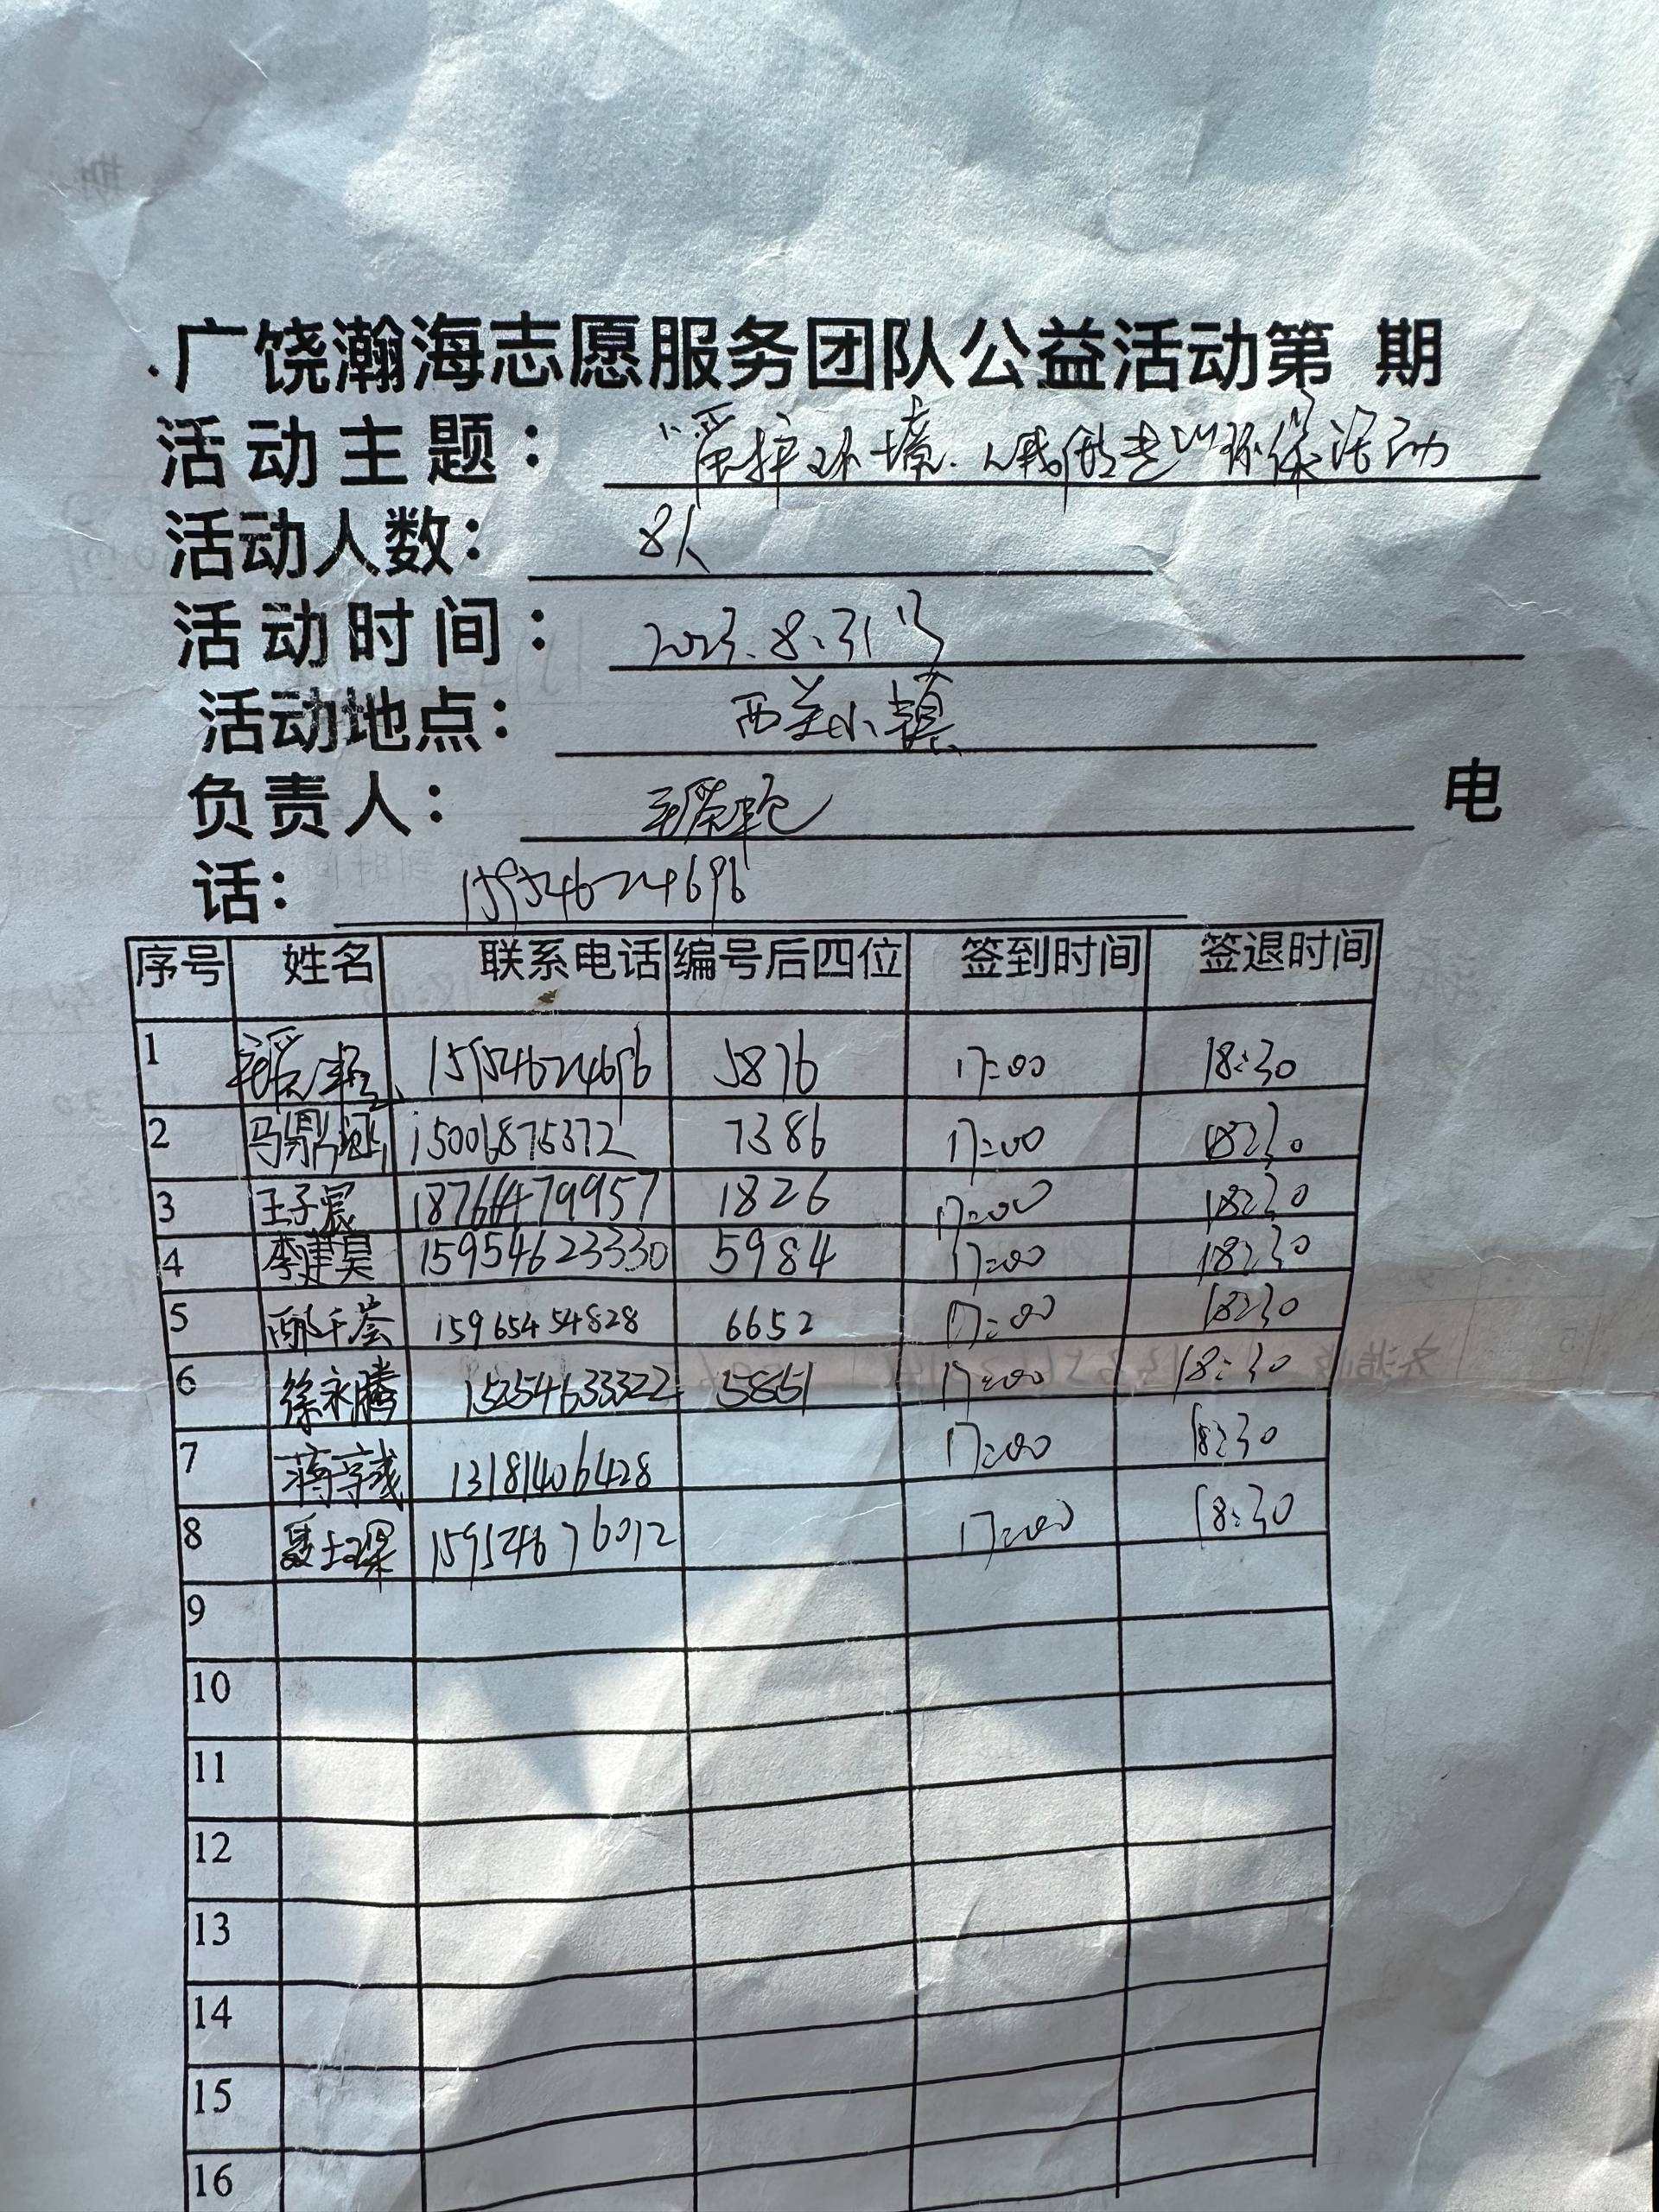 广饶瀚海志愿服务团队公益活动第 期
活动主题： "爱护环境、从我做起"环保活动
活动人数： 8人
活动时间： 2023.8.31号
活动地点： 西关小镇
负责人： 电
话： 15954624696
序号 姓名 联系电话 编号后四位 签到时间 签退时间
1 15954624696 5876 17:00 18:30
2 马鼎 15006875372 7386 17:00 18:30
3 王子宸 18766479957 1826 17:00 18:30
4 李建昊 15954623330 5984 17:00 18:30
5 千荟 15965454828 6652 17:00 18:30
6 徐永腾 15254633322 5851 17:00 18:30
7 蒋 13181406428 17:00 18:30
8 15954676012 17:00 18:30
9
10
11
12
13
14
15
16